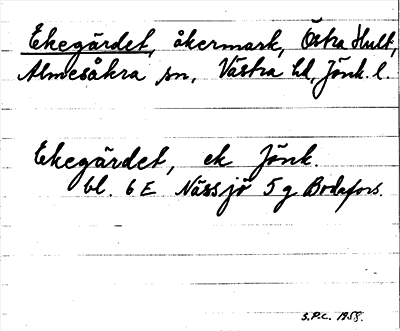 Ekegärdet, åkermark, Östra Hult,
Almesåkra sn, Västra hd, Jönk. l.
Ekegärdet, ek Jönk.
bl. 6 E Nässjö 5 g Bodafors.
S.P.C. 1958.